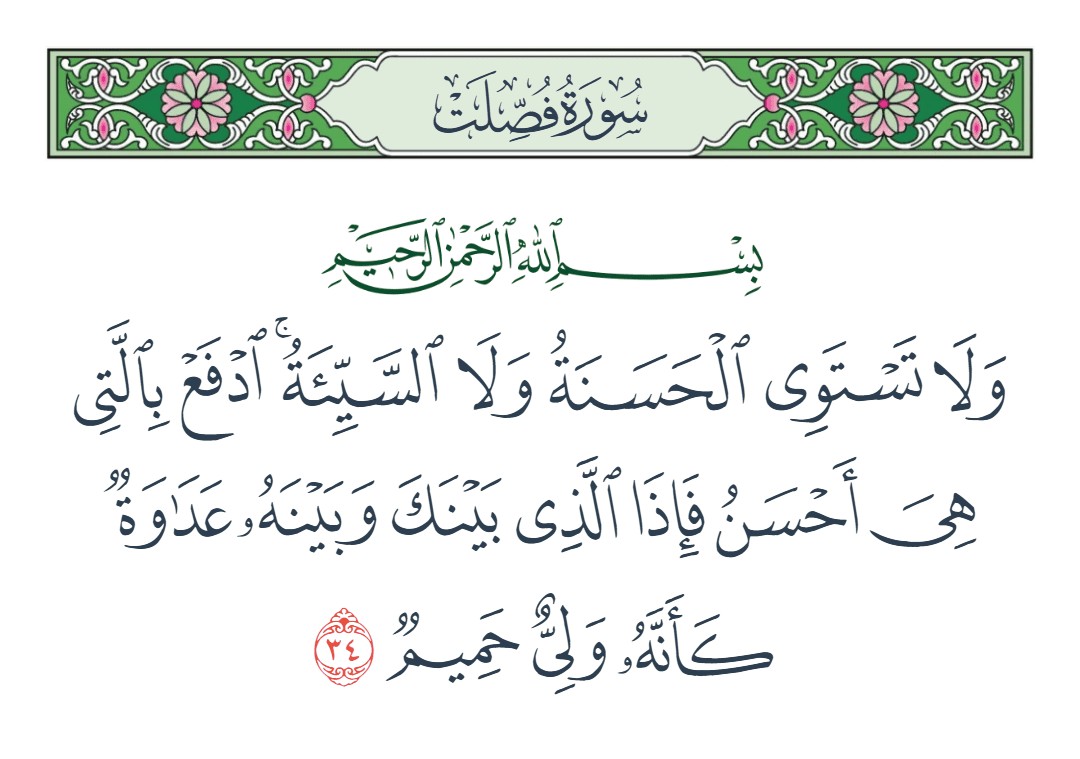 سُورَةُ فُصِّلَتْ
بِسْمِ ٱللَّهِ ٱلرَّحْمَٰنِ ٱلرَّحِيمِ
وَلَا تَسْتَوِى ٱلْحَسَنَةُ وَلَا ٱلسَّيِّئَةُ ۚ ٱدْفَعْ بِٱلَّتِى
هِىَ أَحْسَنُ فَإِذَا ٱلَّذِى بَيْنَكَ وَبَيْنَهُۥ عَدَٰوَةٌ
كَأَنَّهُۥ وَلِىٌّ حَمِيمٌ ٣٤